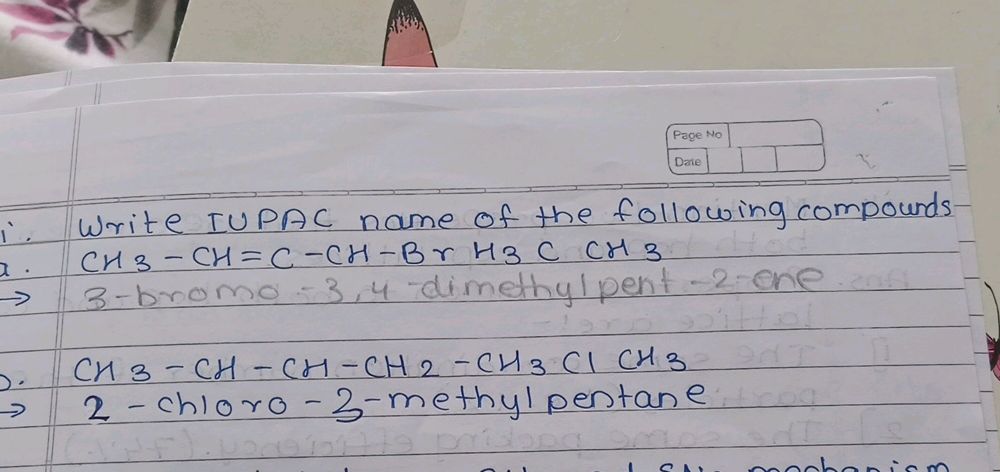 Page No
Date
i. Write IUPAC name of the following compounds
a. CH3-CH=C-CH-Br H3 C CH3
→ 3-bromo-3,4-dimethylpent-2-ene
b. CH3-CH-CH-CH2-CH3 Cl CH3
→ 2-chloro-3-methylpentane
mechanism